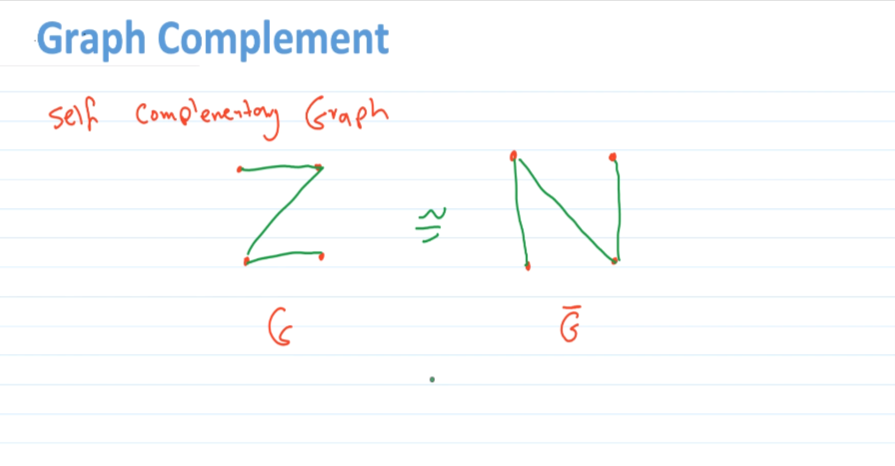 Graph Complement
Self Complementary Graph
≅
G
G̅